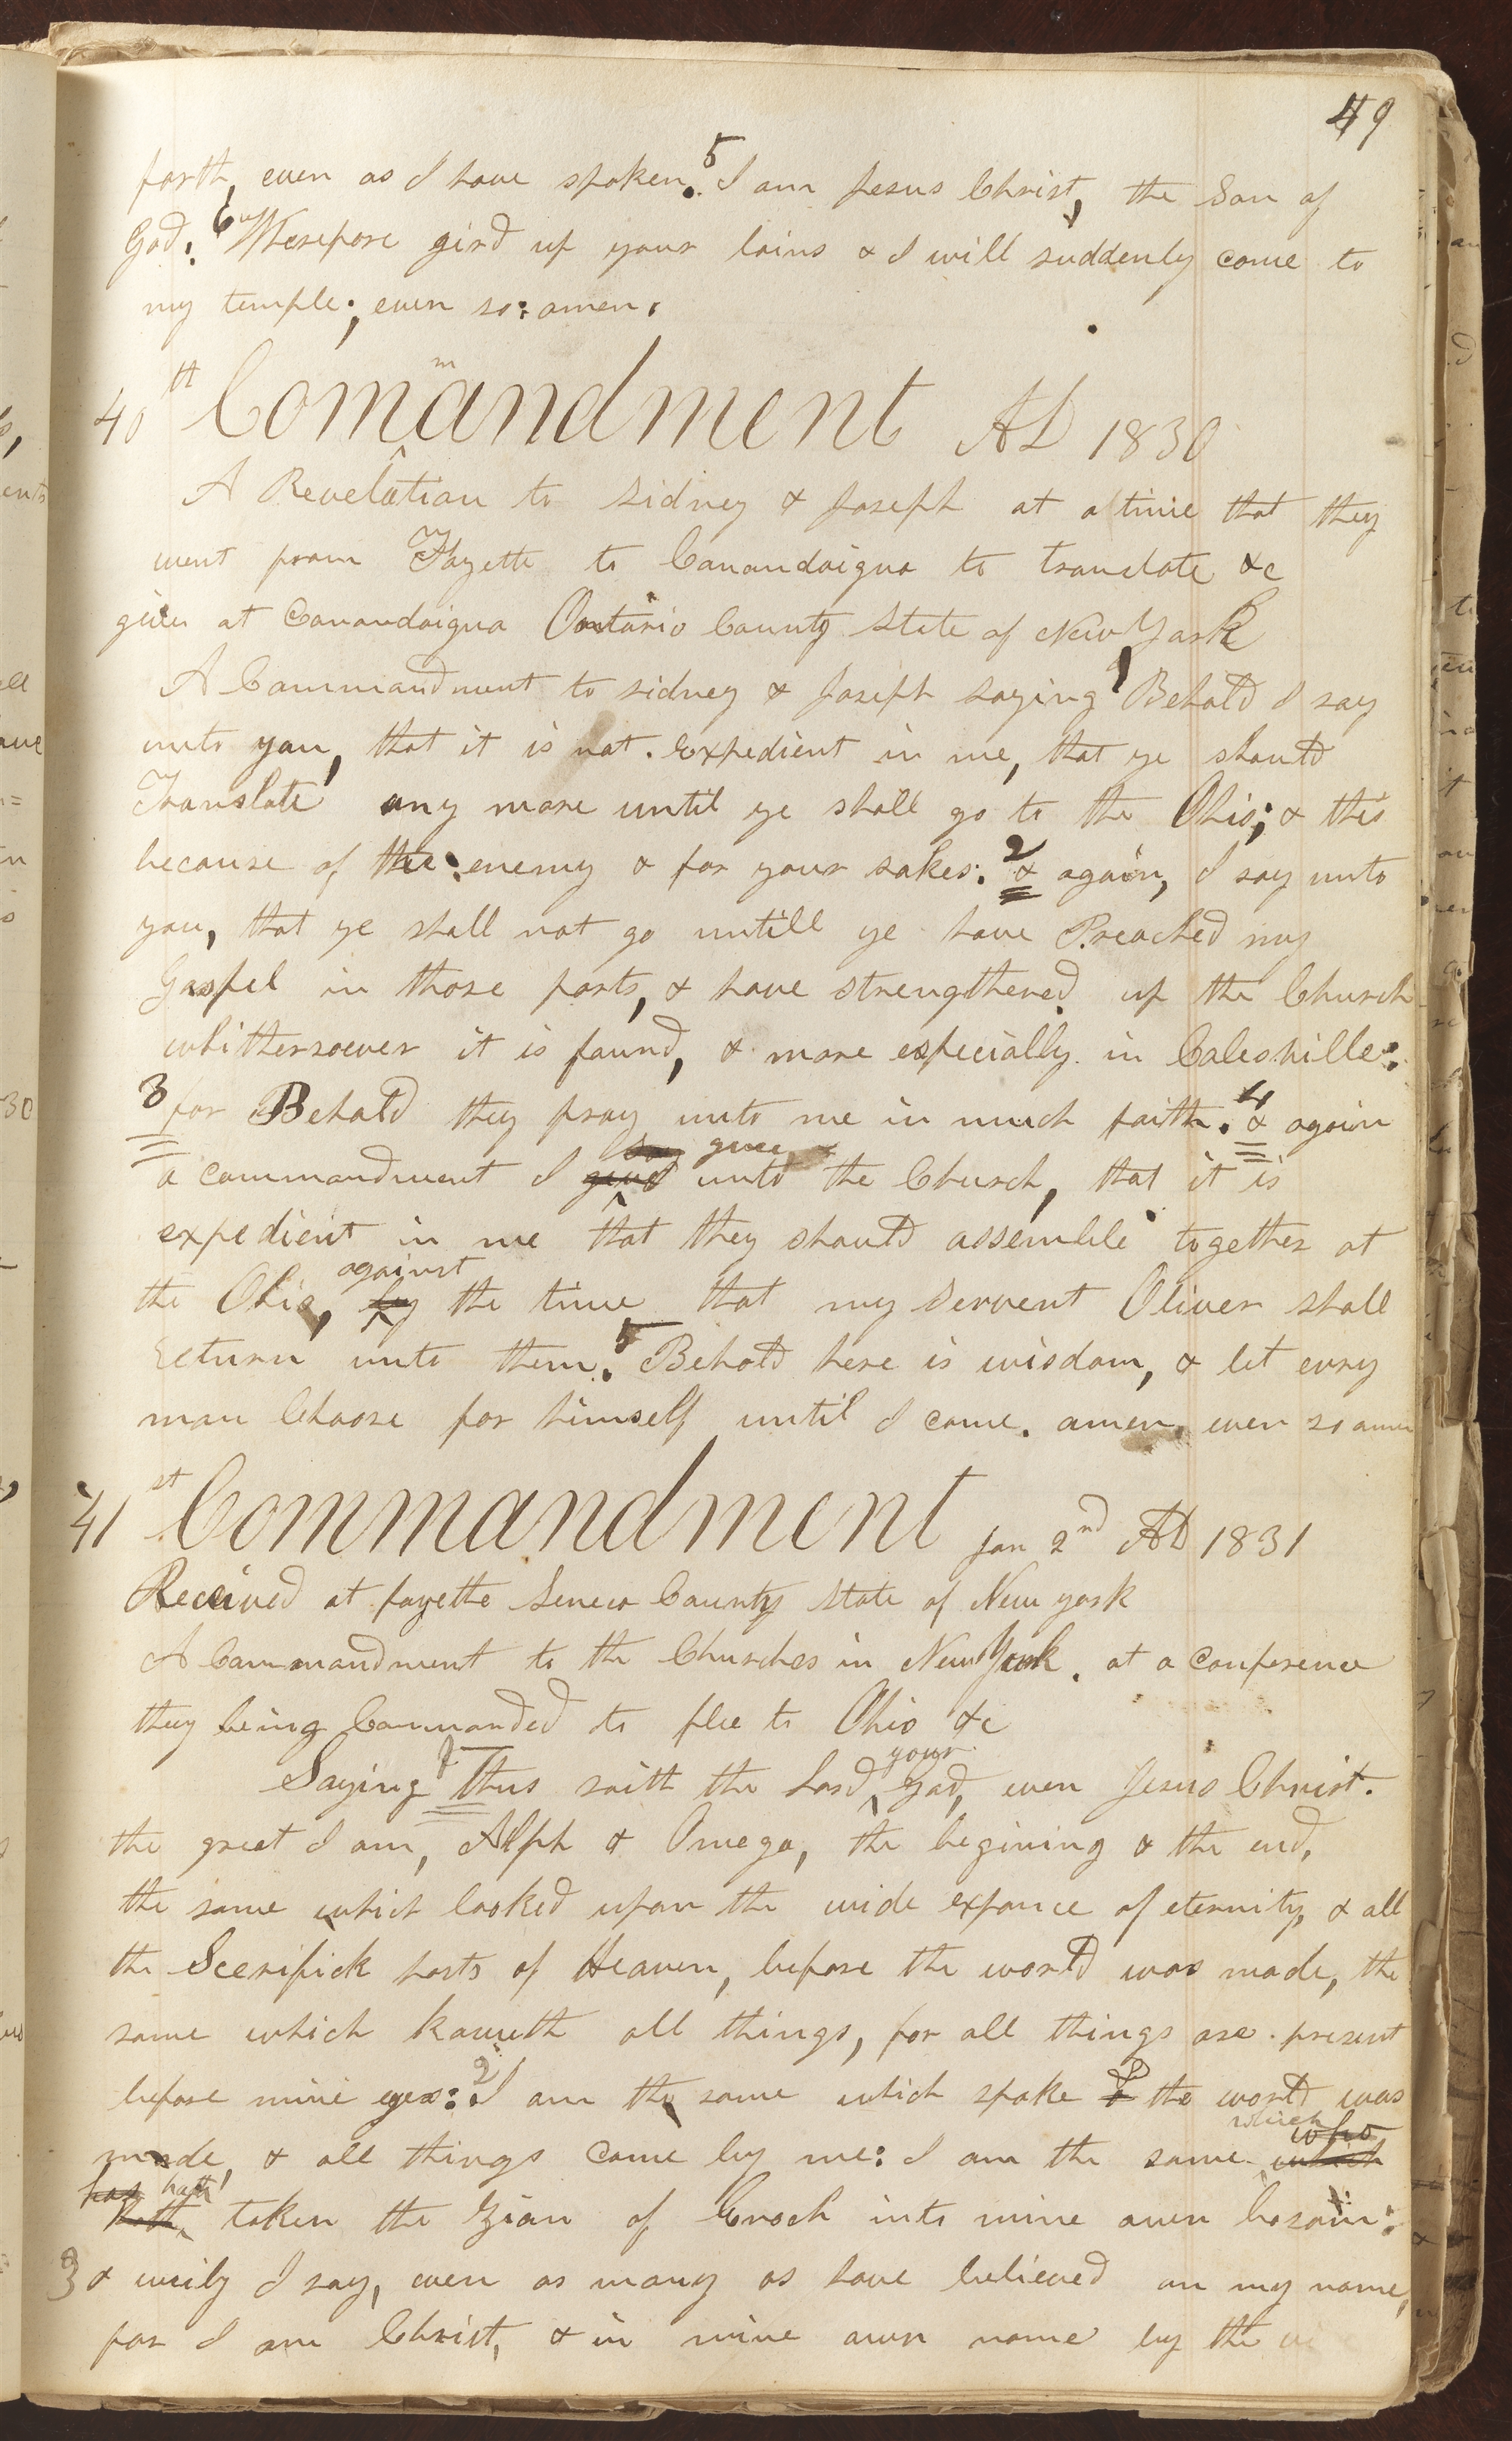 49
forth, even as I have spoken. 5 I am Jesus Christ, the Son of
God. 6 Wherefore gird up your loins & I will suddenly come to
my temple; even so: amen.
40th Commandment AD 1830
A Revelation to Sidney & Joseph at a time that they
went from Fayette to Canandaigua to translate &c
given at Canandaigua Ontario County State of New York
A Commandment to Sidney & Joseph saying 1 Behold I say
unto you, that it is not. Expedient in me, that ye should
Translate any more until ye shall go to the Ohio; & this
because of the enemy & for your sakes. 2 & again, I say unto
you, that ye shall not go untill ye have Preached my
Gospel in those parts, & have strengthened up the Church
whithersoever it is found, & more especially in Colesville:
3 for Behold they pray unto me in much faith. 4 & again
a commandment I give unto the Church, that it is
expedient in me that they should assemble together at
the Ohio, by against the time that my Servent Oliver shall
return unto them. 5 Behold here is wisdom, & let evry
man Choose for himself until I come. amen. even so amen
41st Commandment Jan 2nd AD 1831
Received at fayette Seneca County State of New york
A Commandment to the Churches in New York. at a conference
they being Commanded to flee to Ohio &c
Saying 1 Thus saith the Lord your God, even Jesus Christ.
the great I am, Alph & Omega, the begining & the end,
the same which looked upon the wide expance of eternity, & all
the Seerifick hosts of Heaven, before the world was made, the
same which knoweth all things, for all things are present
before mine eyes: 2 I am the same which spake & the world was
made, & all things come by me: I am the same which who which
has hath hath taken the Zion of Enoch into mine own bosom:
3 & verily I say, even as many as have believed on my name,
for I am Christ, & in mine own name by the